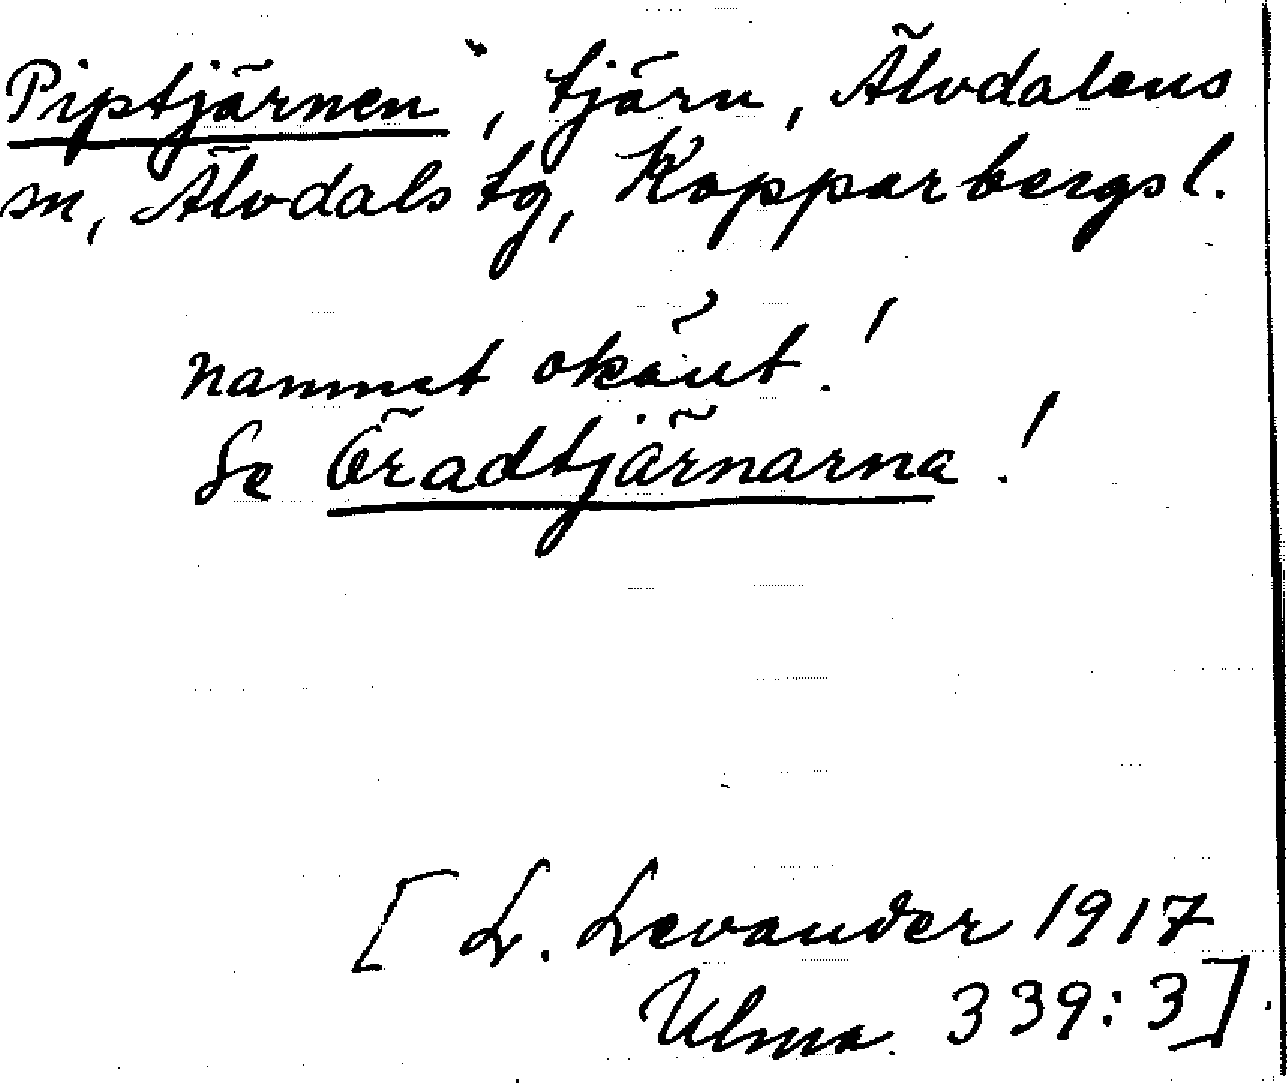 Piptjärnen, tjärn, Älvdalens
sn, Älvdals tg, Kopparbergs l.
namnet okänt!
Se Öradtjärnarna!
[L. Levander 1917
Ulma 339:3].